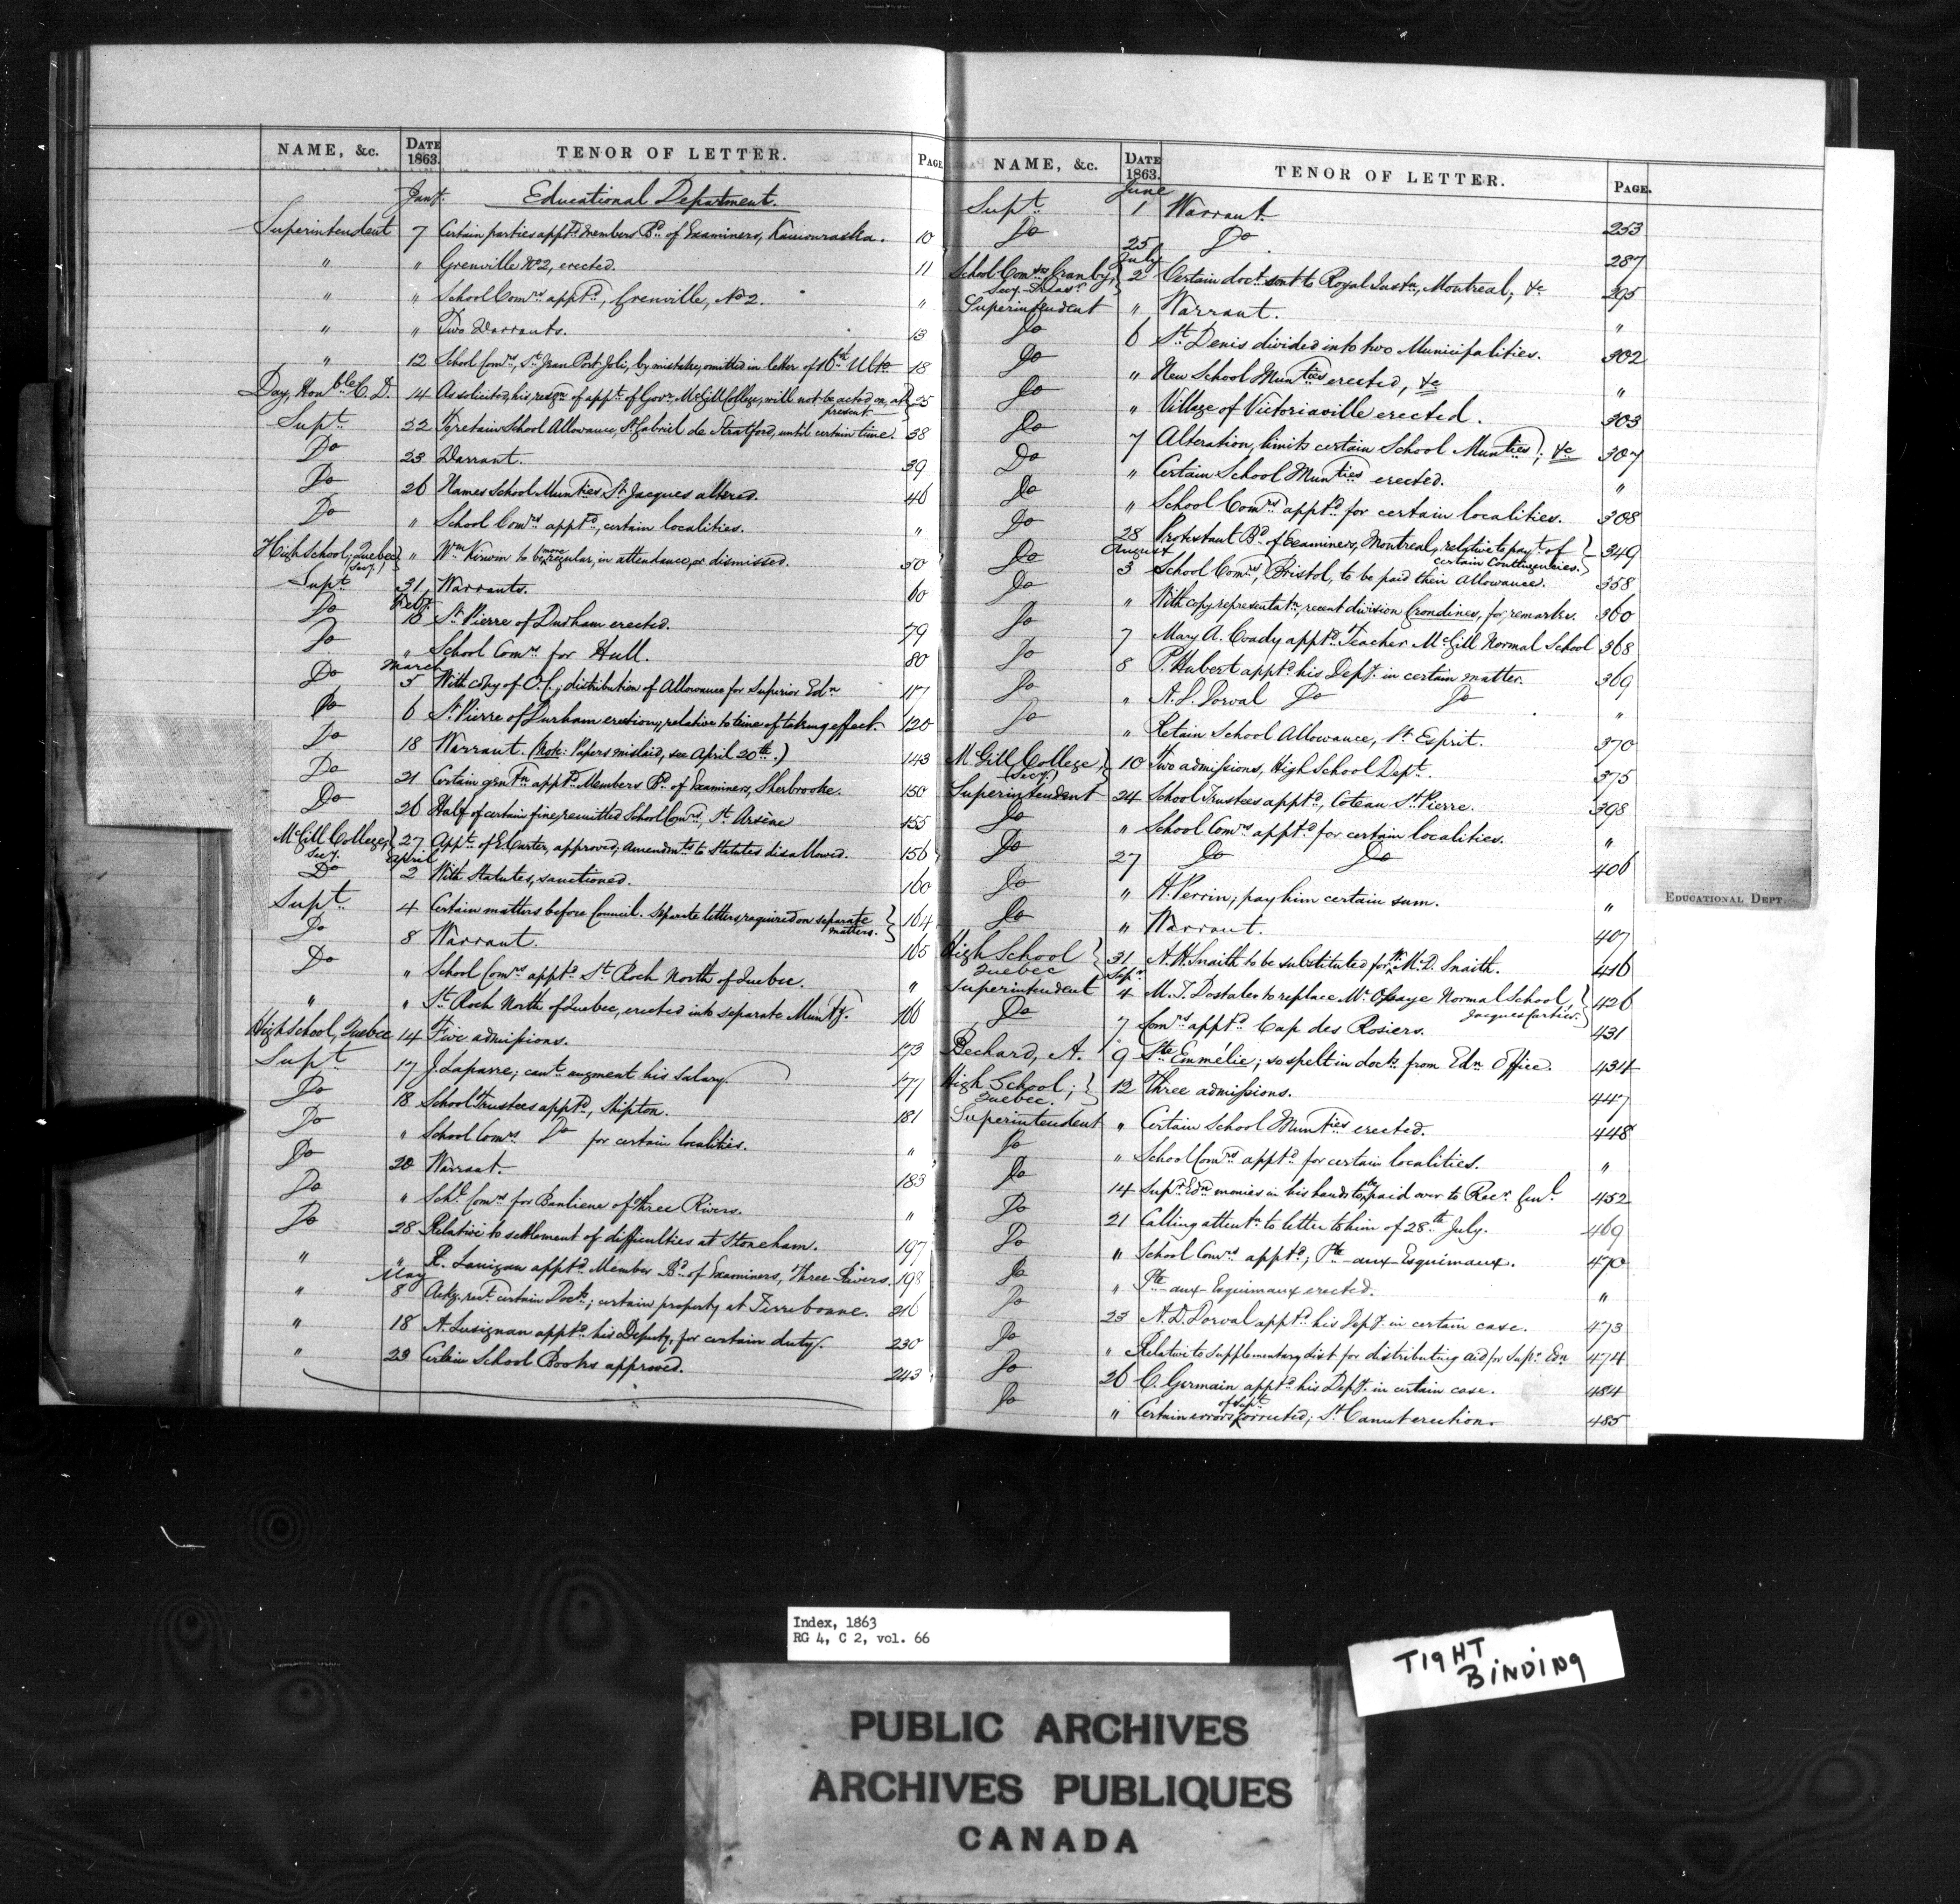 NAME, &c. DATE 1863. TENOR OF LETTER. PAGE
Jany. Educational Department.
Superintendent 7 Certain parties apptd. Members Bd. of Examiners, Kamouraska. 10
" " Grenville No 2, erected. 11
" " School Comrs. apptd., Grenville, No 2. "
" " Two Warrants. 13
" 12 School Comrs., St. Jean Port Joli, by mistake, omitted in letter of 16th Ulto. 18
Day, Honble C. D. 14 As solicited, his resgn. of appt. of Govr. McGill College, will not be acted on, at present 25
Supt. 22 To retain School Allowance, St. Gabriel de Stratford, until certain time. 38
Do 23 Warrant. 39
Do 26 Names School Munties. St. Jacques altered. 46
Do " School Comrs. apptd., certain localities. "
High School, Quebec (Secy.) } " Wm. Kirwin to be more regular, in attendance, or dismissed. 50
Supt. 31 Warrants. 60
Feby.
Do 18 St. Pierre of Durham erected. 79
Do " School Comrs. for Hull. 80
March
Do 5 With copy of O.C.; distribution of Allowance for Superior Edn. 117
Do 6 St. Pierre of Durham erection; relative to time of taking effect. 120
Do 18 Warrant. (Note: Papers mislaid, see April 20th.) 143
Do 21 Certain gentn. apptd. Members Bd. of Examiners, Sherbrooke. 150
Do 26 Half of certain fine, remitted School Comrs., St. Arsène 155
McGill College, Secy. } 27 Appt. of E Carter, approved; Amendmts. to Statutes disallowed. 156
April
Do 2 With Statutes, sanctioned. 160
Supt. 4 Certain matters before Council. Separate letters required on separate matters. } 164
Do 8 Warrant. 165
Do " School Comrs. apptd. St. Roch North of Quebec. "
" " St. Roch North of Quebec, erected into separate Munty. 166
High School, Quebec 14 Five admissions. 173
Supt. 17 J. Laparre; cant. augment his Salary. 177
Do 18 School Trustees apptd., Shipton. 181
Do " School Comrs. Do for certain localities. "
Do 20 Warrant. 183
Do " Schl. Comrs. for Banliene of Three Rivers. "
Do 28 Relative to settlement of difficulties at Stoneham. 197
" " R. Lanigan apptd. Member Bd. of Examiners, Three Rivers. 198
May
" 8 Ackg. rect. certain Docts.; certain property at Terrebonne. 216
" 18 A. Lusignan apptd. his Deputy, for certain duty. 230
" 23 Certain School Books approved. 243
NAME, &c. DATE 1863. TENOR OF LETTER. PAGE.
June
Supt. 1 Warrant. 253
Do 25 Do 287
July
School Comrs Granby, Secy. Treasr. } 2 Certain doct. sent to Royal Instn., Montreal; &c 295
Superintendent " Warrant. "
Do 6 St. Denis divided into two Municipalities. 302
Do " New School Munties erected, &c "
Do " Village of Victoriaville erected. 303
Do 7 Alteration, limits certain School Munties; &c 307
Do " Certain School Munties erected. "
Do " School Comrs. apptd. for certain localities. 308
Do 28 Protestant Bd. of Examiners, Montreal, relative to payt. of certain Contingencies. } 349
August
Do 3 School Comrs., Bristol, to be paid their Allowance. 358
Do " With copy representatn., recent division Grondines, for remarks. 360
Do 7 Mary A. Coady apptd. Teacher McGill Normal School 368
Do 8 P. Hubert apptd. his Depy. in certain matter. 369
Do " A. L. Dorval Do Do "
Do " Retain School Allowance, St. Esprit. 370
McGill College, (Secy.) } 10 Two admissions, High School Dept. 375
Superintendent 24 School Trustees apptd., Coteau St. Pierre. 398
Do " School Comrs. apptd. for certain localities. "
Do 27 Do Do 406
Do " H. Perrin; pay him certain sum. "
Do " Warrant. 407
High School Quebec } 31 A. H. Snaith to be substituted for Wm. D. Snaith. 416
Sepr.
Superintendent 4 M. J. Dostaler to replace Mr. Normal School, Jacques Cartier. } 426
Do 7 Comrs. apptd. Cap des Rosiers. 431
Bechard, A. 9 Ste. Emmélie; so spelt in docts. from Edn. Office. 434
High School; Quebec. } 12 Three admissions. 447
Superintendent " Certain School Munties erected. 448
Do " School Comrs. apptd. for certain localities. "
Do 14 Supr. Edn. monies in his hands to be paid over to Recr. Genl. 452
Do 21 Calling attentn. to letter to him of 28th July. 469
Do " School Comrs. apptd.; Pte.-aux-Esquimaux. 470
Do " Pte.-aux-Esquimaux erected. "
Do 23 A. D. Dorval apptd. his Depy. in certain case. 473
Do " Relative to Supplementary List for distributing aid for Supr. Edn 474
Do 26 C. Germain apptd. his Depy. in certain case. 484
Do " Certain errors of Supt. corrected; St. Canut erection. 485
EDUCATIONAL DEPT.
Index, 1863
RG 4, C 2, vol. 66
TIGHT
BINDING
PUBLIC ARCHIVES
ARCHIVES PUBLIQUES
CANADA